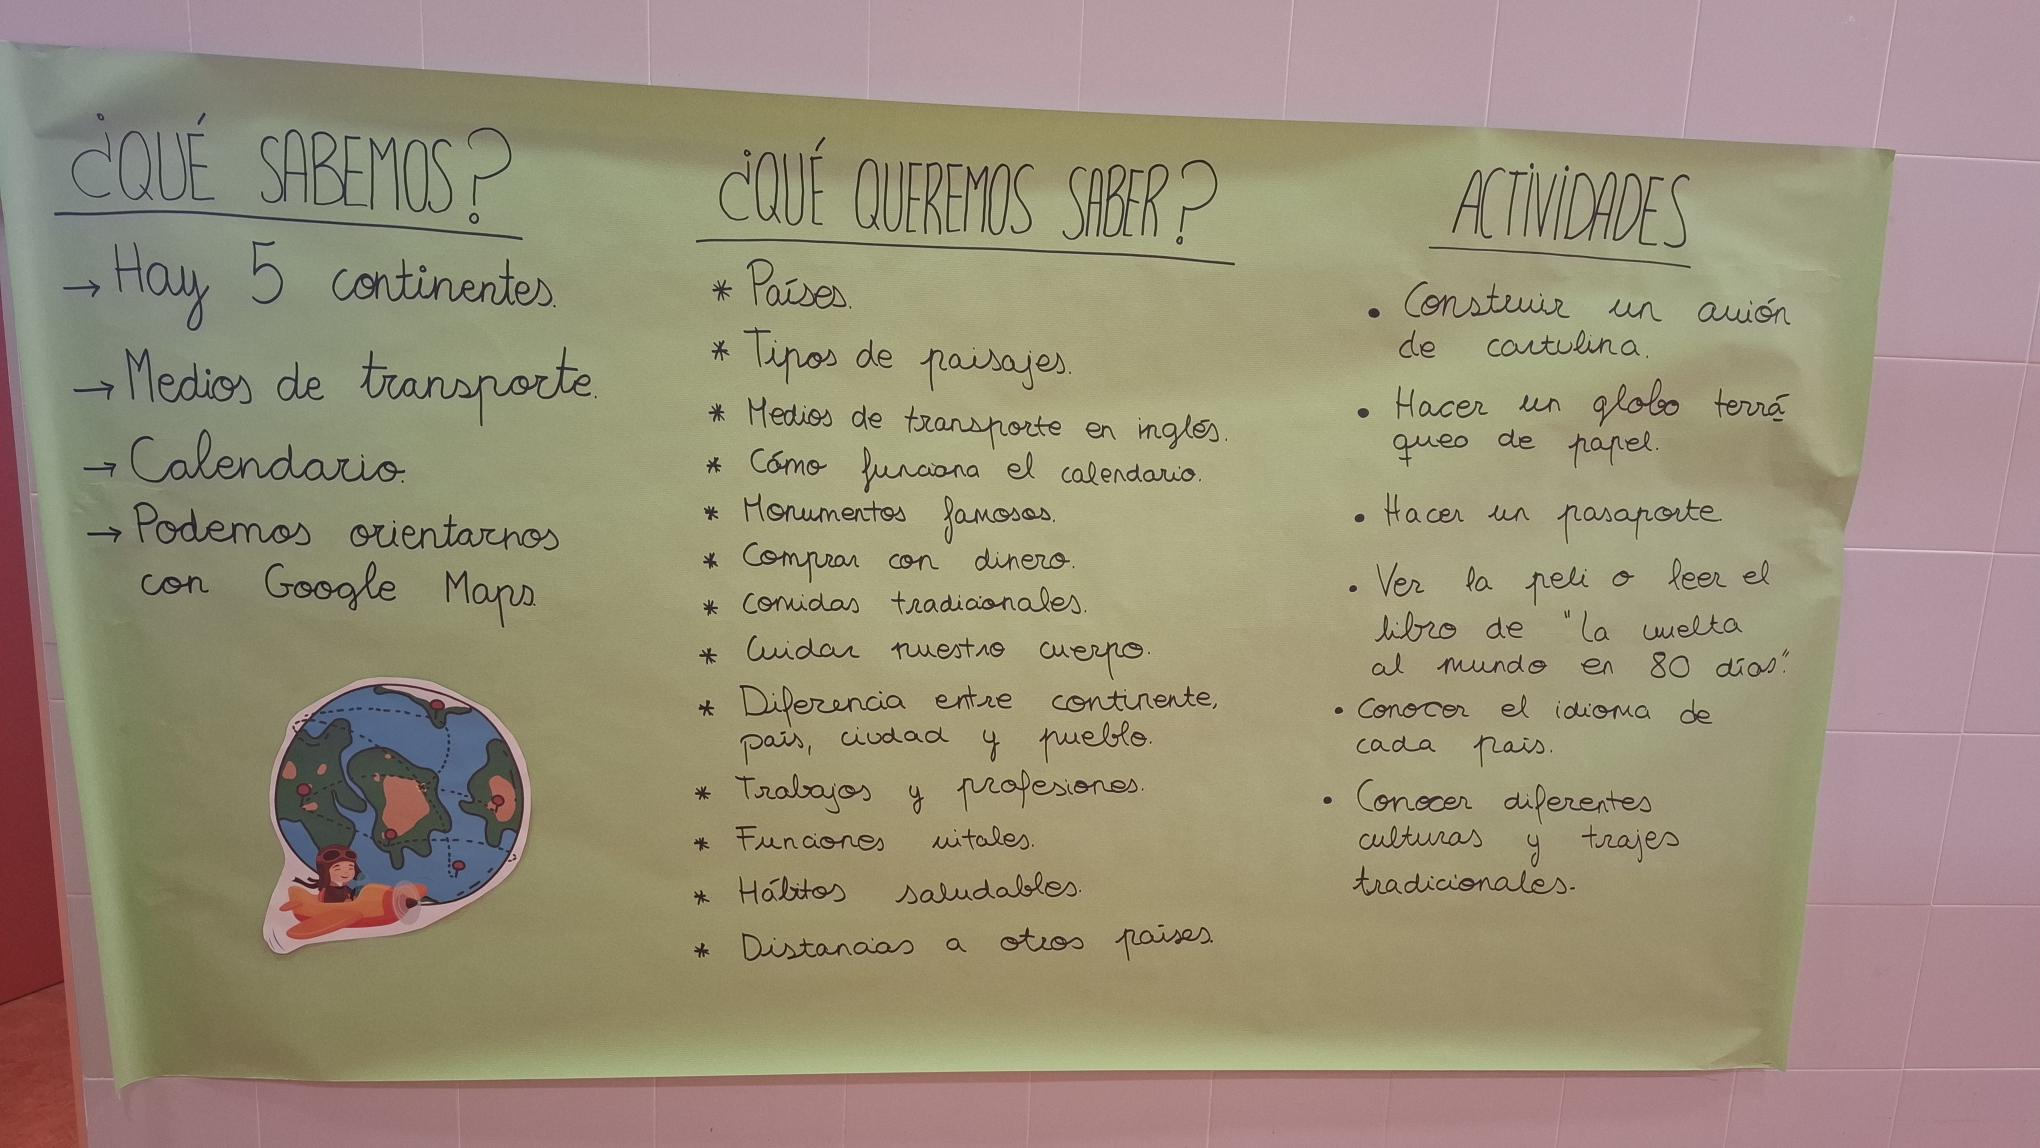 ¿QUÉ SABEMOS?
→ Hay 5 continentes.
→ Medios de transporte.
→ Calendario.
→ Podemos orientarnos
con Google Maps.
¿QUÉ QUEREMOS SABER?
* Países.
* Tipos de paisajes.
* Medios de transporte en inglés.
* Cómo funciona el calendario.
* Monumentos famosos.
* Comprar con dinero.
* Comidas tradicionales.
* Cuidar nuestro cuerpo.
* Diferencia entre continente,
país, ciudad y pueblo.
* Trabajos y profesiones.
* Funciones vitales.
* Hábitos saludables.
* Distancias a otros países.
ACTIVIDADES
• Construir un avión
de cartulina.
• Hacer un globo terrá
queo de papel.
• Hacer un pasaporte.
• Ver la peli o leer el
libro de "la vuelta
al mundo en 80 días".
• Conocer el idioma de
cada país.
• Conocer diferentes
culturas y trajes
tradicionales.